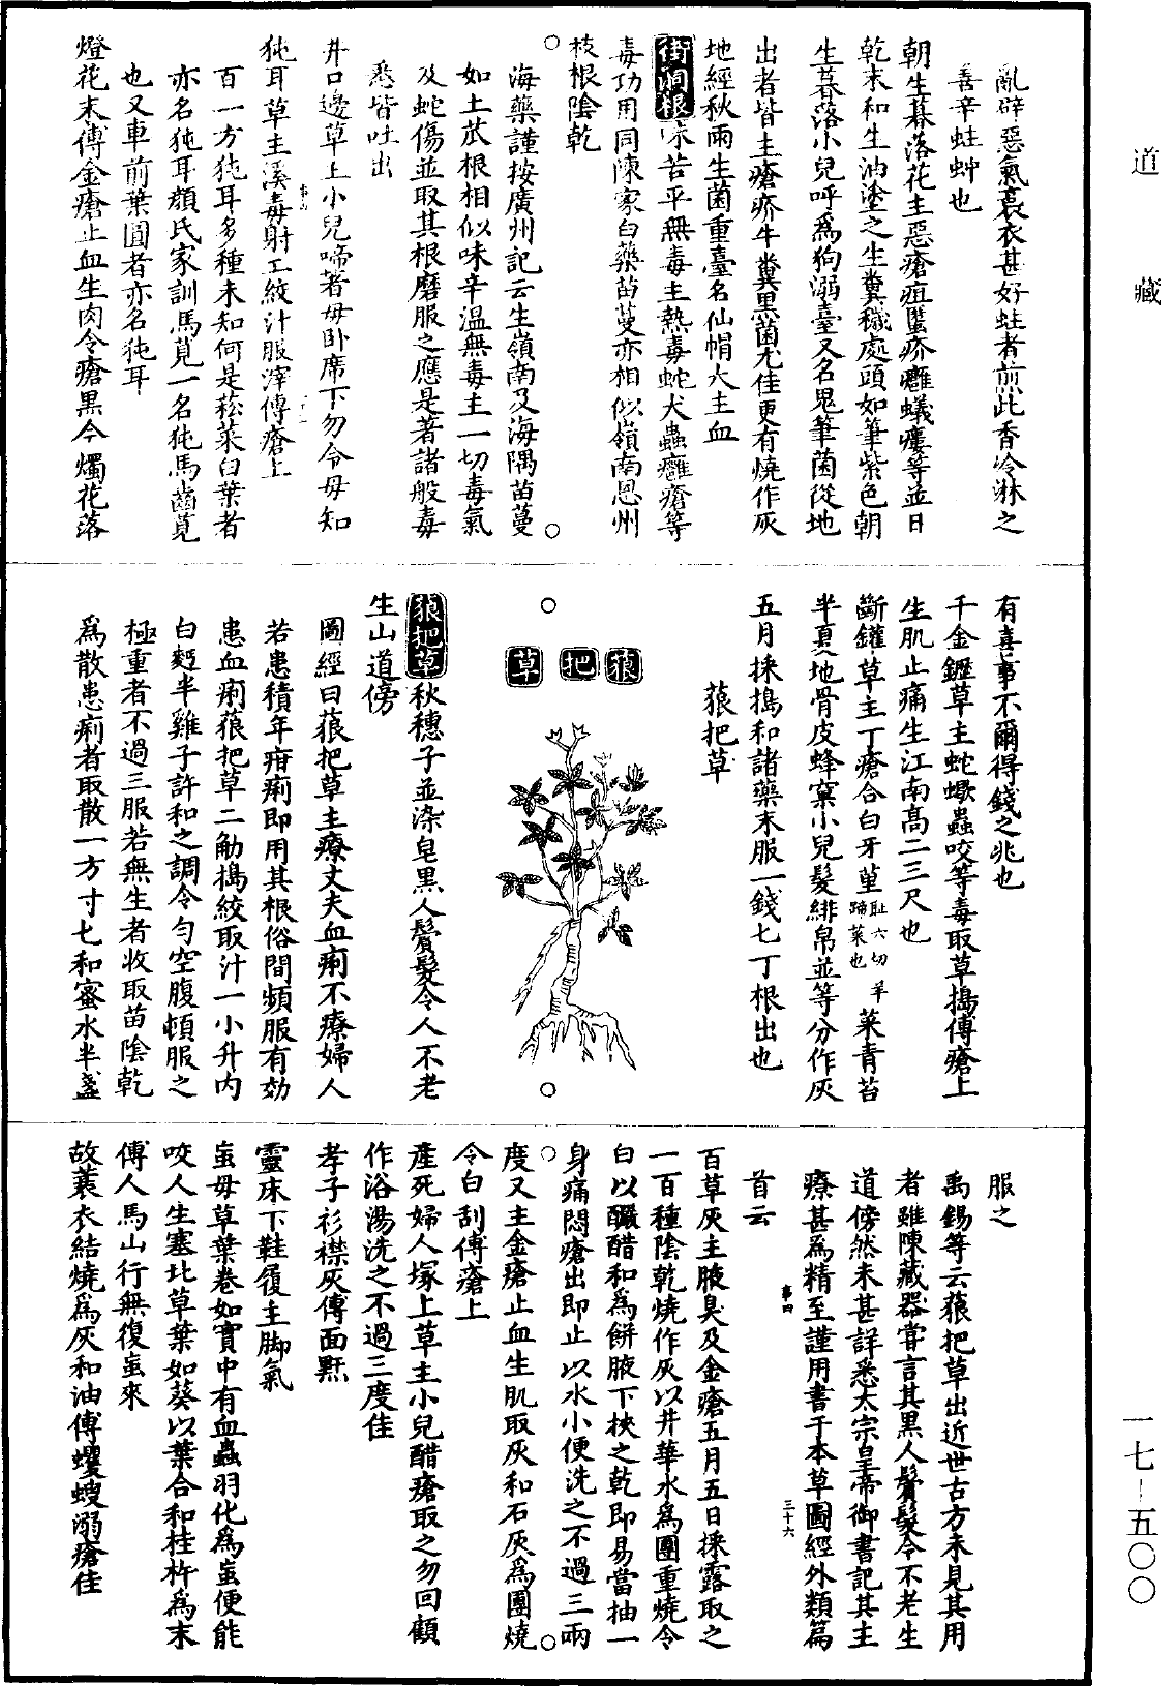 亂辟惡氣裛衣甚好蛀者煎此香冷淋之
善辛蛀蚛也
朝生暮落花主惡瘡疽䘌疥癰蟻瘻等並日
乾末和生油塗之生糞穢處頭如筆紫色朝
生暮落小兒呼為狗溺臺又名鬼筆菌從地
出者皆主瘡疥牛糞黑菌尤佳更有燒作灰
地經秋雨生菌重臺名仙帽大主血
衝洞根味苦平無毒主熱毒蛇犬蟲癰瘡等
毒功用同陳家白藥苗蔓亦相似嶺南恩州
採根陰乾
海藥謹按廣州記云生嶺南及海隅苗蔓
如土苽根相似味辛溫無毒主一切毒氣
及蛇傷並取其根磨服之應是著諸般毒
悉皆吐出
井口邊草主小兒啼著母卧席下勿令母知
㹠耳草主溪毒射工絞汁服滓傅瘡上
百一方㹠耳多種未知何是菘菜白葉者
亦名㹠耳顏氏家訓馬莧一名㹠馬齒莧
也又車前葉圓者亦名㹠耳
燈花末傅金瘡止血生肉令瘡黑今燭花落
有喜事不爾得錢之兆也
千金鑩草主蛇蠍蟲咬等毒取草搗傅瘡上
生肌止痛生江南高二三尺也
斷罐草主丁瘡合白牙堇恥六切羊蹄菜也菜青苔
半夏地骨皮蜂窠小兒髮緋帛並等分作灰
五月採搗和諸藥末服一錢匕丁根出也
蒗把草
蒗把草
蒗把草秋穗子並染皂黑人鬢髮令人不老
生山道傍
圖經曰蒗把草主療丈夫血痢不療婦人
若患積年疳痢即用其根俗間頻服有効
患血痢蒗把草二觔搗絞取汁一小升內
白麪半雞子許和之調令勻空腹頓服之
極重者不過三服若無生者收取苗陰乾
為散患痢者取散一方寸匕和蜜水半盞
服之
禹錫等云蒗把草出近世古方未見其用
者雖陳藏器嘗言其黑人鬢髮令不老生
道傍然未甚詳悉太宗皇帝御書記其主
療甚為精至謹用書于本草圖經外類篇
首云
百草灰主腋臭及金瘡五月五日採露取之
一百種陰乾燒作灰以井華水為團重燒令
白以釅醋和為餅腋下挾之乾即易當抽一
身痛悶瘡出即止以水小便洗之不過三兩
度又主金瘡止血生肌取灰和石灰為團燒
令白刮傅瘡上
產死婦人塚上草主小兒醋瘡取之勿回顧
作浴湯洗之不過三度佳
孝子衫襟灰傅面䵟
靈床下鞋履主脚氣
蝱母草葉卷如實中有血蟲羽化為蝱便能
咬人生塞北草葉如葵以葉合和桂杵為末
傅人馬山行無復蝱來
故蓑衣結燒為灰和油傅蠼螋溺瘡佳
三十六
道藏
一七-五〇〇